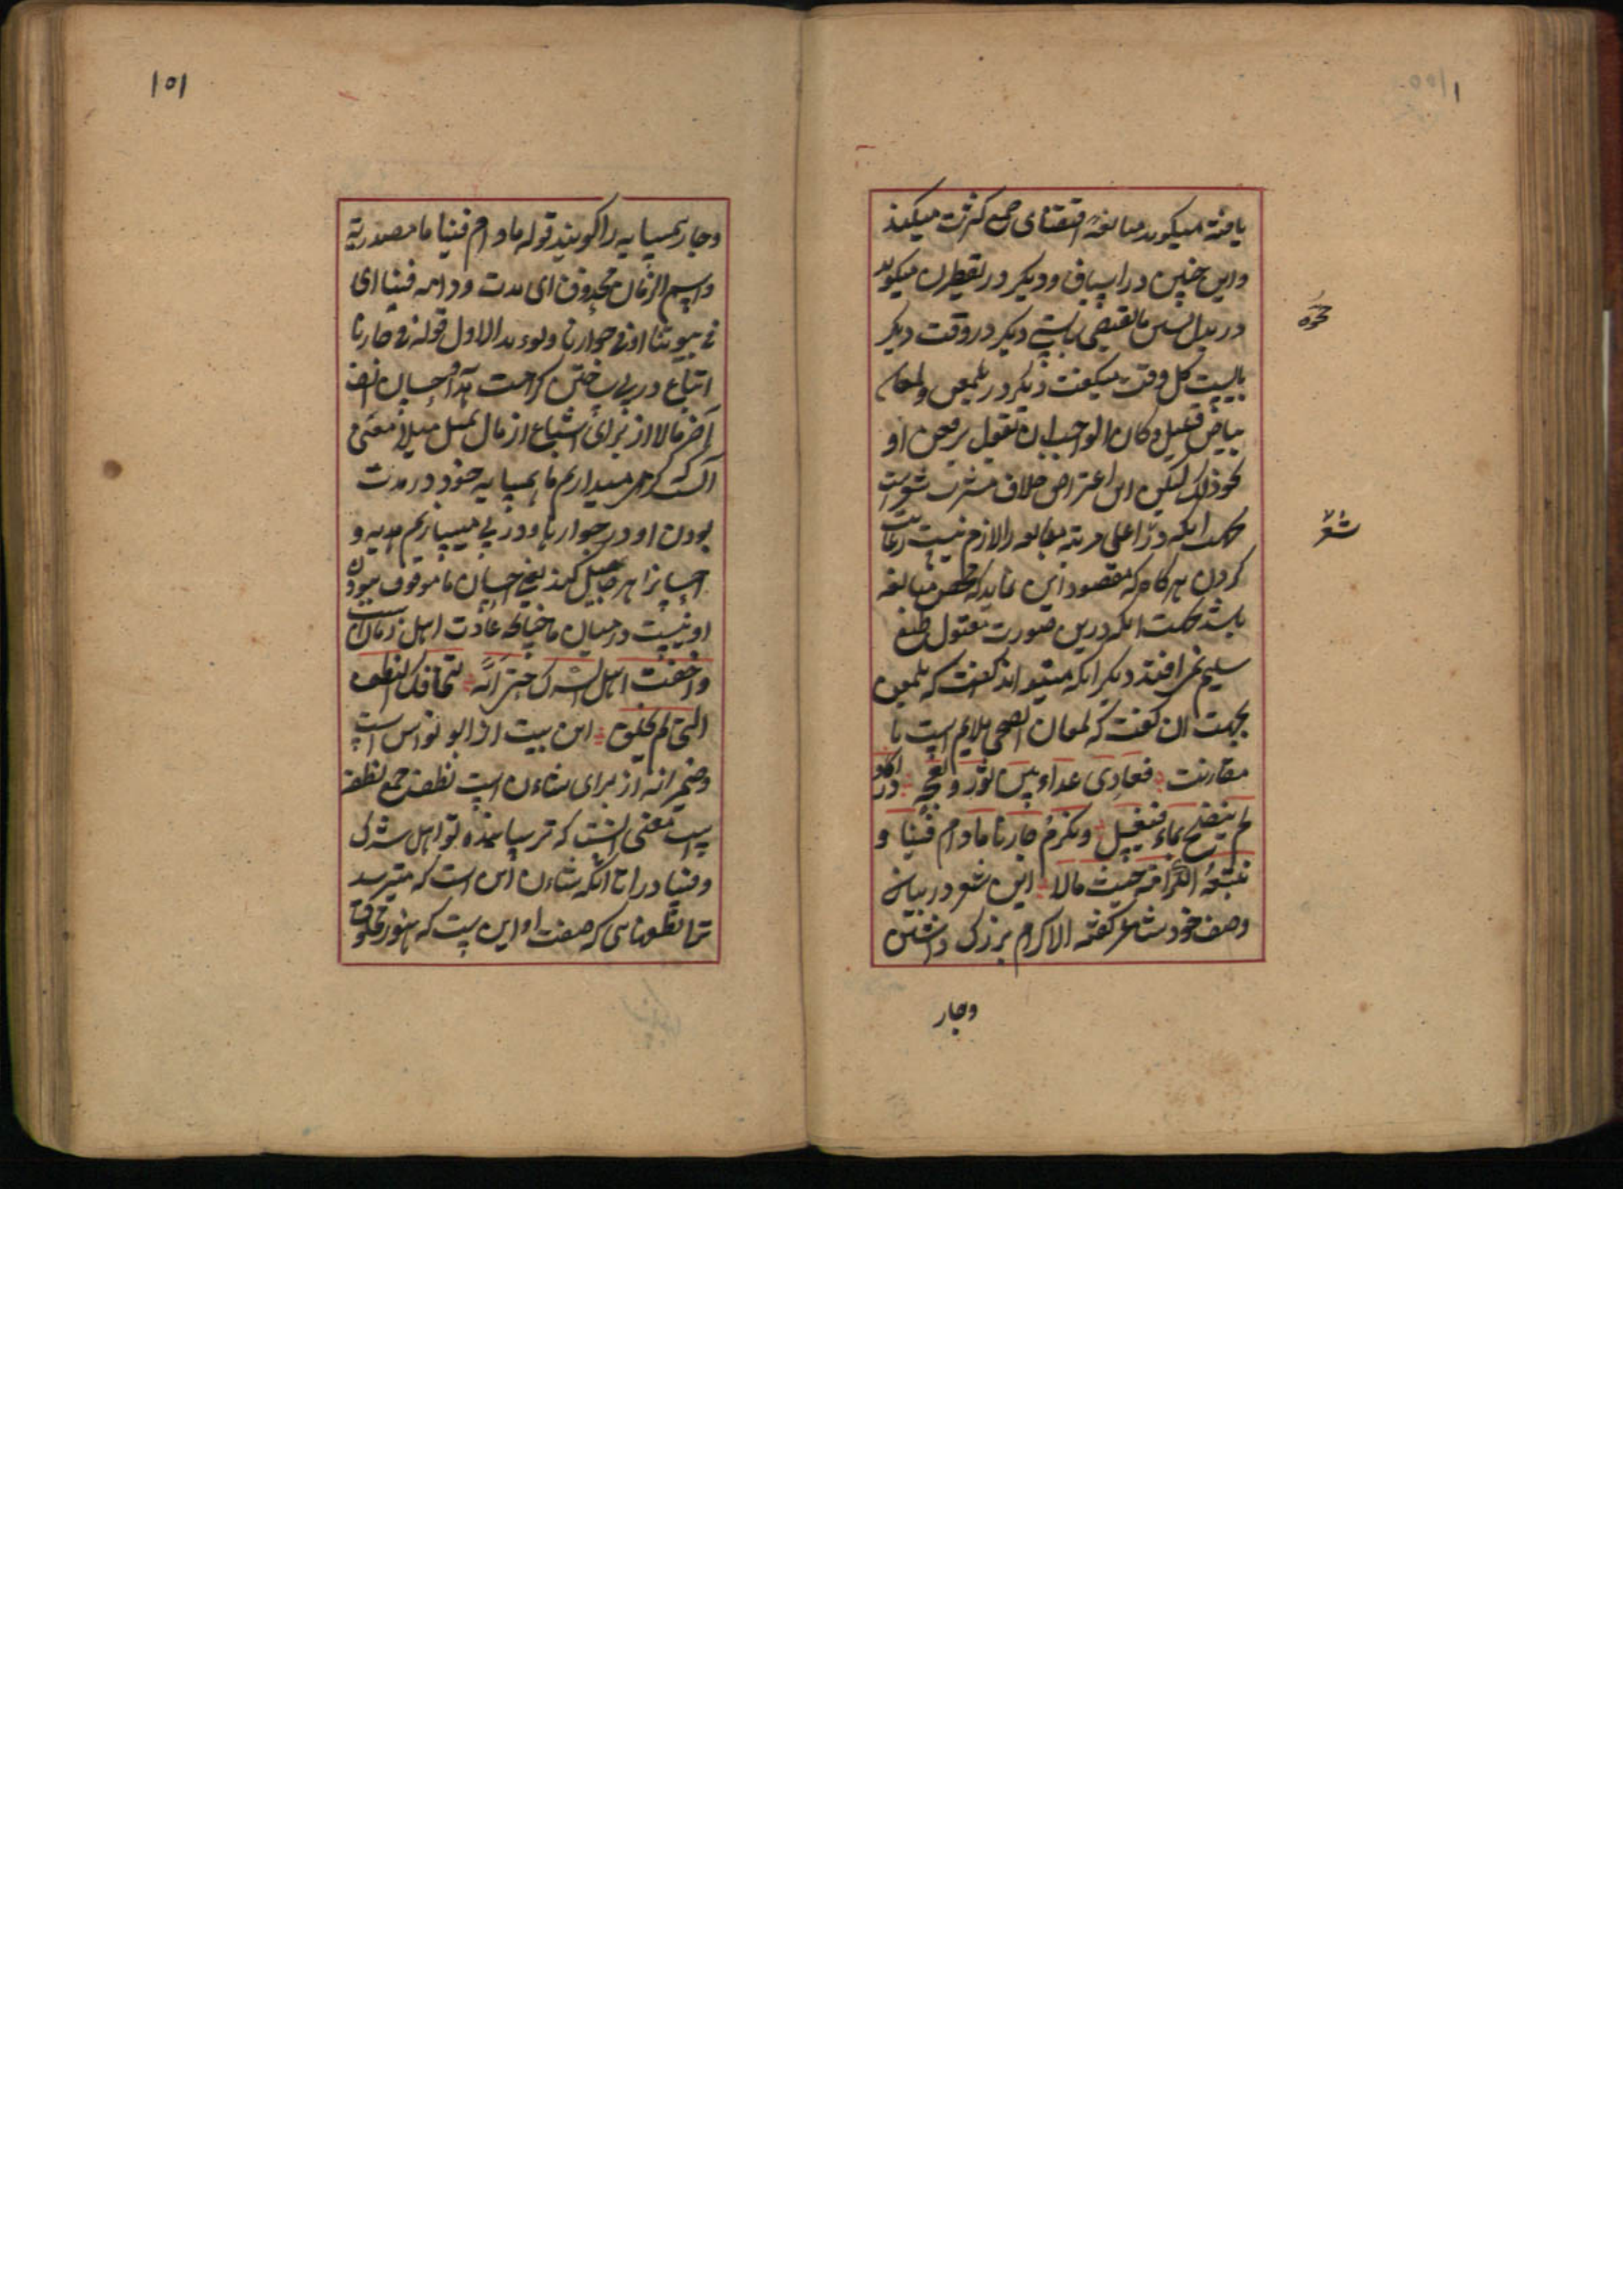 یافته میکوید مبالغه اقتضای جمع کثرت میکند
واین چنین در اسیاف ودیکر در تقطرن میکوید
دیکر در وقت دیکر
بالیست کل وقت میکفت دیکر در یلمعن ولمعان
بیاض قلیل وکان الواجب ان تقول یرقعن او
نحو ذلک لیکن این اعتراض خلاف مشرب شعر است
جهت انکه در اعلی مرتبه مبالغه را لازم نیست رعایت
کردن هرکاه که مقصود این غاید که محض مبالغه
باشد جهت انکه درین صورت مقبول طبع
سلیم نمی افتد دیکر انکه میتواند کفت که یلمعن
بجهت ان کفت که لمعان الضحی ملایم است با
مقارنت فعادی عداء بین ثور ونعجة دراکا و
لم ینضح بماء فیغسل ونکرم جارنا مادام فینا و
نتبعه الکرامة حیث مالا این شعر در بیان
وصف خود شاعر کفته الاکرام بزرک داشتن
وجار
شعر
١٥١
وجار همسایه را کویند قوله مادام فینا ما مصدریة
واسم الزمان محذوف ای مدت ودامه فینا ای
فی بیوتنا او فی جوارنا ویؤید الاول قوله فی جارنا
اتباع در پی ساختن کرامت احسان الف
آخر مالا از برای اشباع از مال یمیل میلا معنی
آنست کرامی میداریم ما همسایه خود در مدت
بودن او در جوار ما ودر پی میسپاریم هدیه و
احسانرا هر جا میل کند یعنی احسان ما موقوف ببودن
او نیست در میان ما چنانچه عادت اهل زمان است
واخفت اهل الشرک حتی انه لتخافک النطف
التی لم تخلق این بیت از ابو نواس است
وضمیر انه از برای شاءن است نطف جمع نطفه
است معنی انست که ترسانیده تو اهل شرک
وفنیا در اتا انکه شاءن این است که میترسد
ترا نطفهای که صفت او این ست که هنوز مخلوق